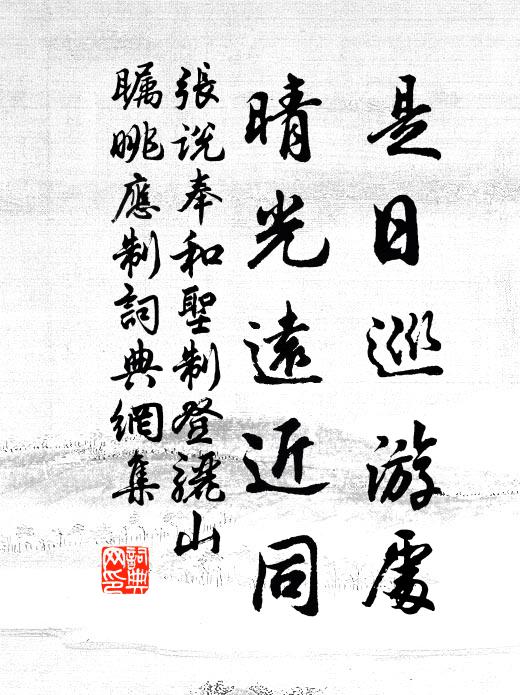 是日巡游處
晴光遠近同
張說奉和聖制登驪山
矚眺應制詞典網集
詞典
网印